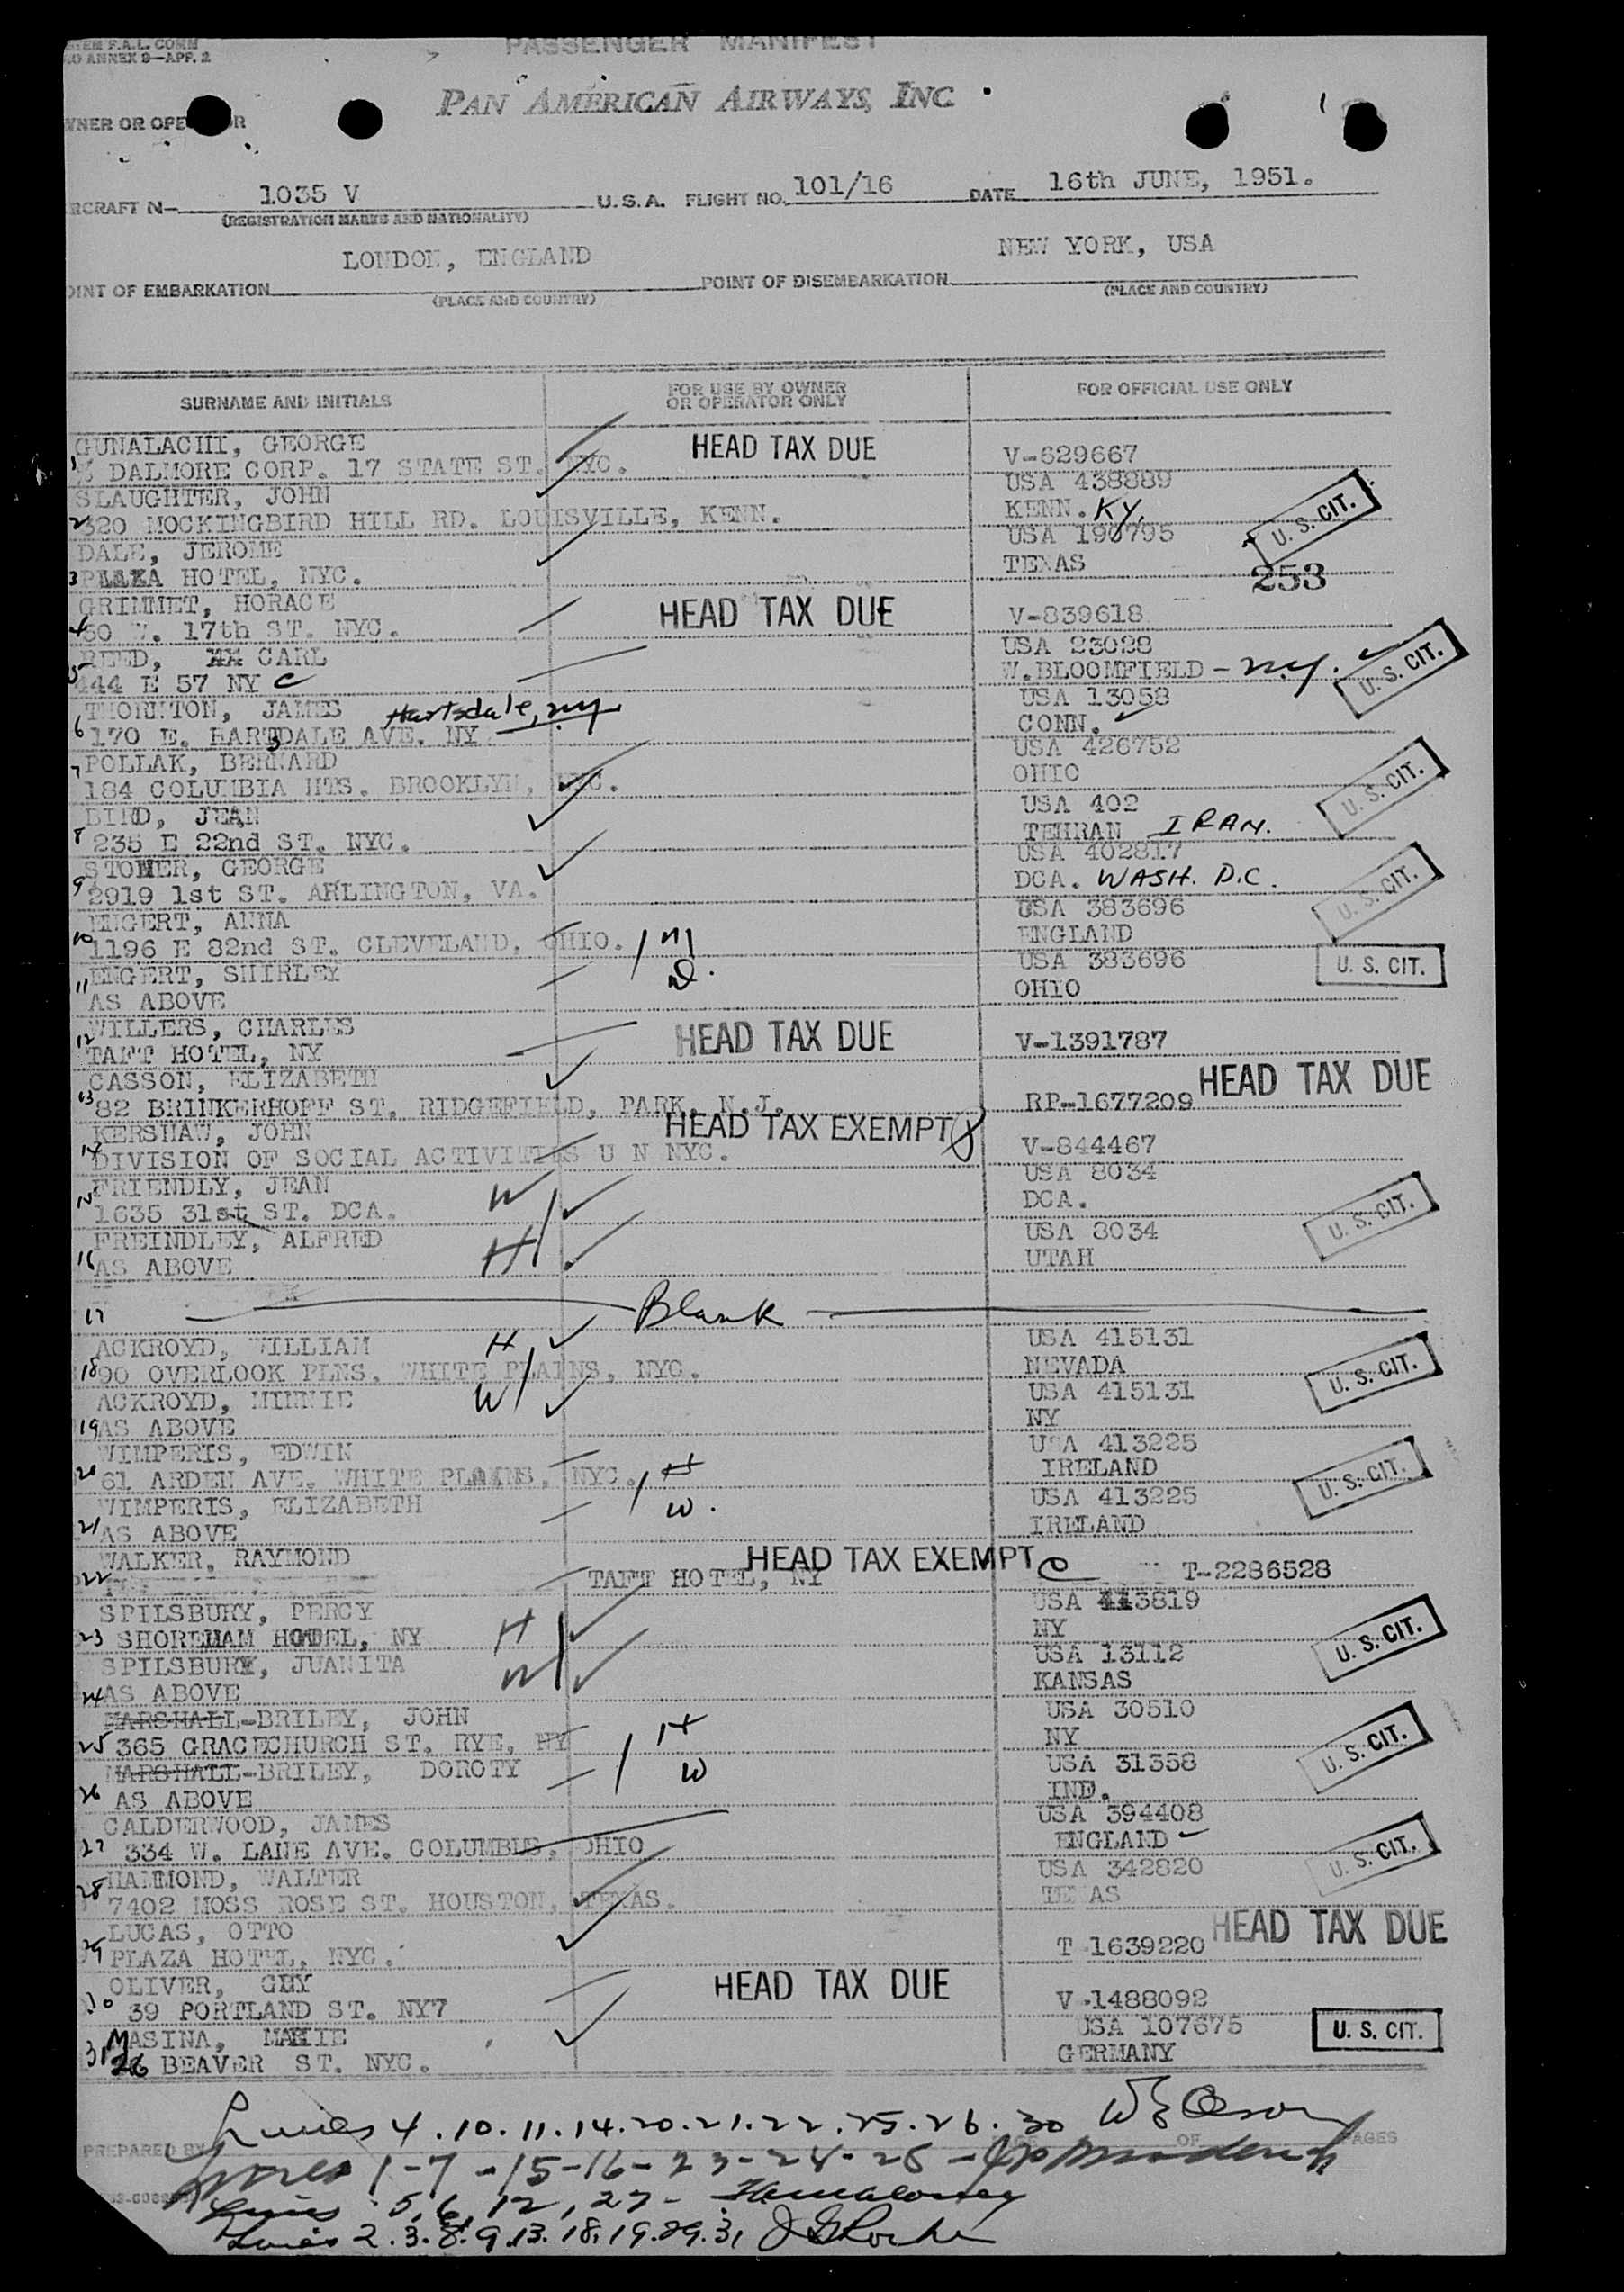 PASSENGER MANIFEST
F.A.L. CORM
ANNEX 9—APP. 2
PAN AMERICAN AIRWAYS, INC.
WNER OR OPE OR
RCRAFT N- 1035 V U.S.A. FLIGHT NO. 101/16 DATE 16th JUNE, 1951.
(REGISTRATION MARKS AND NATIONALITY)
LONDON, ENGLAND NEW YORK, USA
OINT OF EMBARKATION POINT OF DISEMBARKATION
(PLACE AND COUNTRY) (PLACE AND COUNTRY)
SURNAME AND INITIALS FOR USE BY OWNER OR OPERATOR ONLY FOR OFFICIAL USE ONLY
GUNALACHI, GEORGE HEAD TAX DUE V-629667
1 % DALMORE CORP. 17 STATE ST. NYC.
SLAUGHTER, JOHN USA 438889
2 320 MOCKINGBIRD HILL RD. LOUISVILLE, KENN. KENN. KY. U. S. CIT.
DALE, JEROME USA 190795
3 PLAZA HOTEL, NYC. TEXAS 253
GRIMMET, HORACE HEAD TAX DUE V-839618
4 50 W. 17th ST. NYC.
REED, CARL USA 23028
5 444 E 57 NY C W.BLOOMFIELD - N.Y. U. S. CIT.
THORNTON, JAMES Hartsdale, NY USA 13058
6 170 E. HARTSDALE AVE. NY. CONN.
POLLAK, BERNARD USA 426752
7 184 COLUMBIA HTS. BROOKLYN, NYC. OHIO U. S. CIT.
BIRD, JEAN USA 402
8 235 E 22nd ST. NYC. TEHRAN IRAN.
STONER, GEORGE USA 402817
9 2919 1st ST. ARLINGTON, VA. DCA. WASH. D.C. U. S. CIT.
ENGERT, ANNA USA 383696
10 1196 E 82nd ST. CLEVELAND, OHIO. M ENGLAND
ENGERT, SHIRLEY D. USA 383696 U. S. CIT.
11 AS ABOVE OHIO
WILLERS, CHARLES HEAD TAX DUE V-1391787
12 TAFT HOTEL, NY
CASSON, ELIZABETH HEAD TAX DUE
13 82 BRINKERHOFF ST. RIDGEFIELD, PARK, N.J. RP-1677209
KERSHAW, JOHN HEAD TAX EXEMPT V-844467
14 DIVISION OF SOCIAL ACTIVITIES U N NYC.
FRIENDLY, JEAN W USA 8034
15 1635 31st ST. DCA. DCA. U. S. CIT.
FREINDLEY, ALFRED H USA 8034
16 AS ABOVE UTAH
17 Blank
ACKROYD, WILLIAM H USA 415131
18 90 OVERLOOK PLNS. WHITE PLAINS, NYC. NEVADA U. S. CIT.
ACKROYD, MINNIE W USA 415131
19 AS ABOVE NY
WIMPERIS, EDWIN USA 413225
20 61 ARDEN AVE. WHITE PLAINS, NYC. H IRELAND U. S. CIT.
WIMPERIS, ELIZABETH W. USA 413225
21 AS ABOVE IRELAND
WALKER, RAYMOND HEAD TAX EXEMPT C T-2286528
22 TAFT HOTEL, NY
SPILSBURY, PERCY H USA 413819
23 SHOREHAM HOTEL, NY NY U. S. CIT.
SPILSBURY, JUANITA W USA 13112
24 AS ABOVE KANSAS
MARSHALL-BRILEY, JOHN H USA 30510
25 365 GRACECHURCH ST. RYE, NY NY U. S. CIT.
MARSHALL-BRILEY, DOROTY W USA 31358
26 AS ABOVE IND.
CALDERWOOD, JAMES USA 394408
27 334 W. LANE AVE. COLUMBUS, OHIO ENGLAND U. S. CIT.
HAMMOND, WALTER USA 342820
28 7402 MOSS ROSE ST. HOUSTON, TEXAS. TEXAS
LUCAS, OTTO HEAD TAX DUE
29 PLAZA HOTEL, NYC. T-1639220
OLIVER, GUY HEAD TAX DUE V-1488092
30 39 PORTLAND ST. NY7
MASINA, MARIE USA 107675 U. S. CIT.
31 26 BEAVER ST. NYC. GERMANY
Lines 4.10.11.14.20.21.22.25.26.30 W E Olson
PREPARED BY OF PAGES
Lines 1-7-15-16-23-24-28-
Lines 5, 6, 12, 27-
Lines 2.3.8.9.13.18.19.29.31